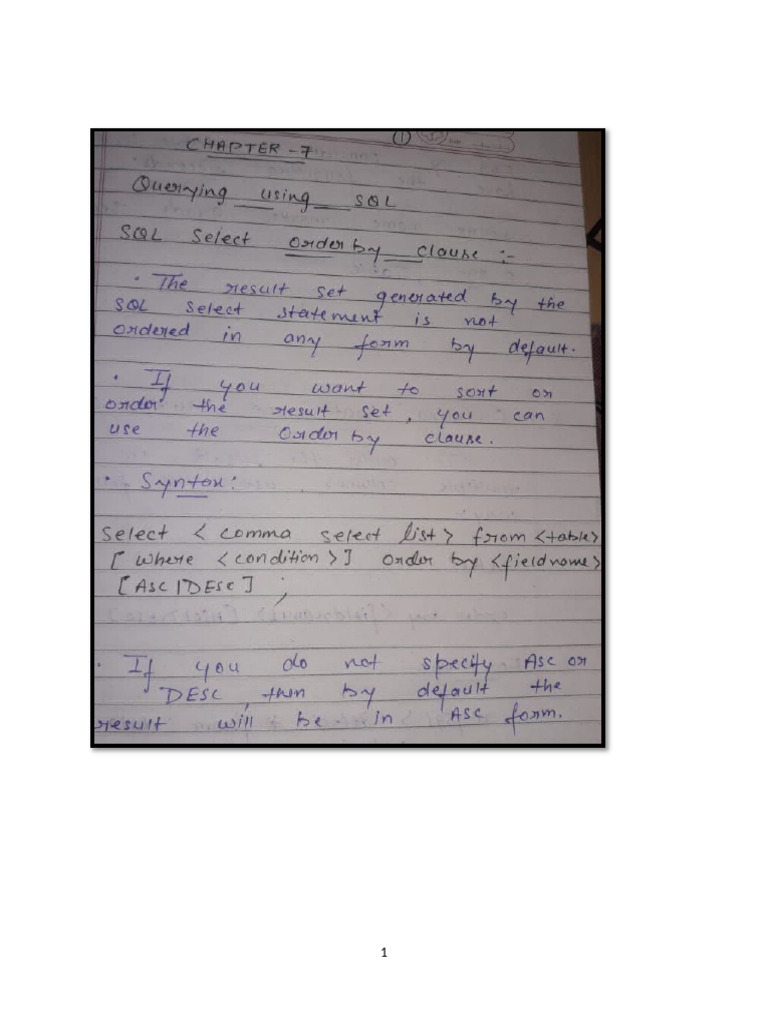 ①
CHAPTER - 7
Querying using SQL
SQL Select order by clause :-
• The result set generated by the
SQL select statement is not
ordered in any form by default.
• If you want to sort or
order the result set, you can
use the Order by clause.
• Syntax:
Select < comma select list> from <table>
[ where <condition>] order by <fieldname>
[ASC|DESC] ;
• If you do not specify ASC or
DESC, then by default the
result will be in ASC form.
1